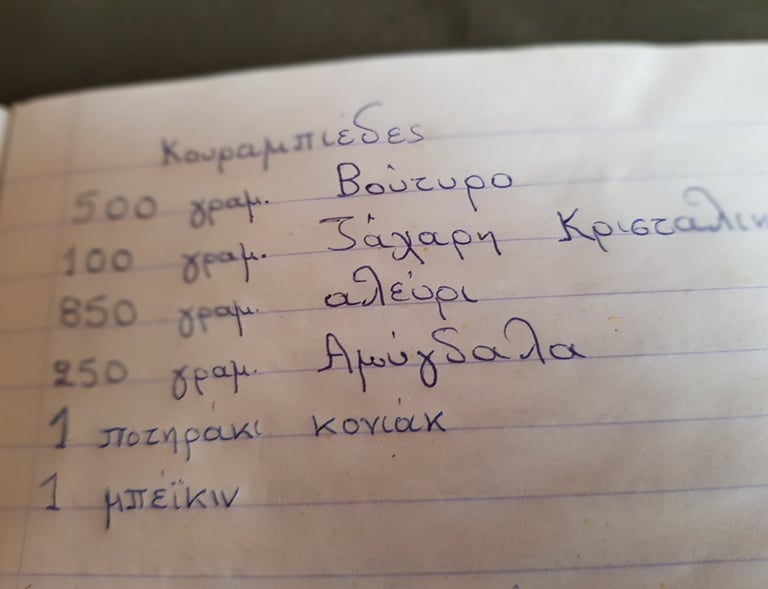 Κουραμπιέδες
500 γραμ. Βούτυρο
100 γραμ. Ζάχαρη
850 γραμ. αλεύρι
250 γραμ. Αμύγδαλα
1 ποτηράκι κονιάκ
1 μπέϊκιν